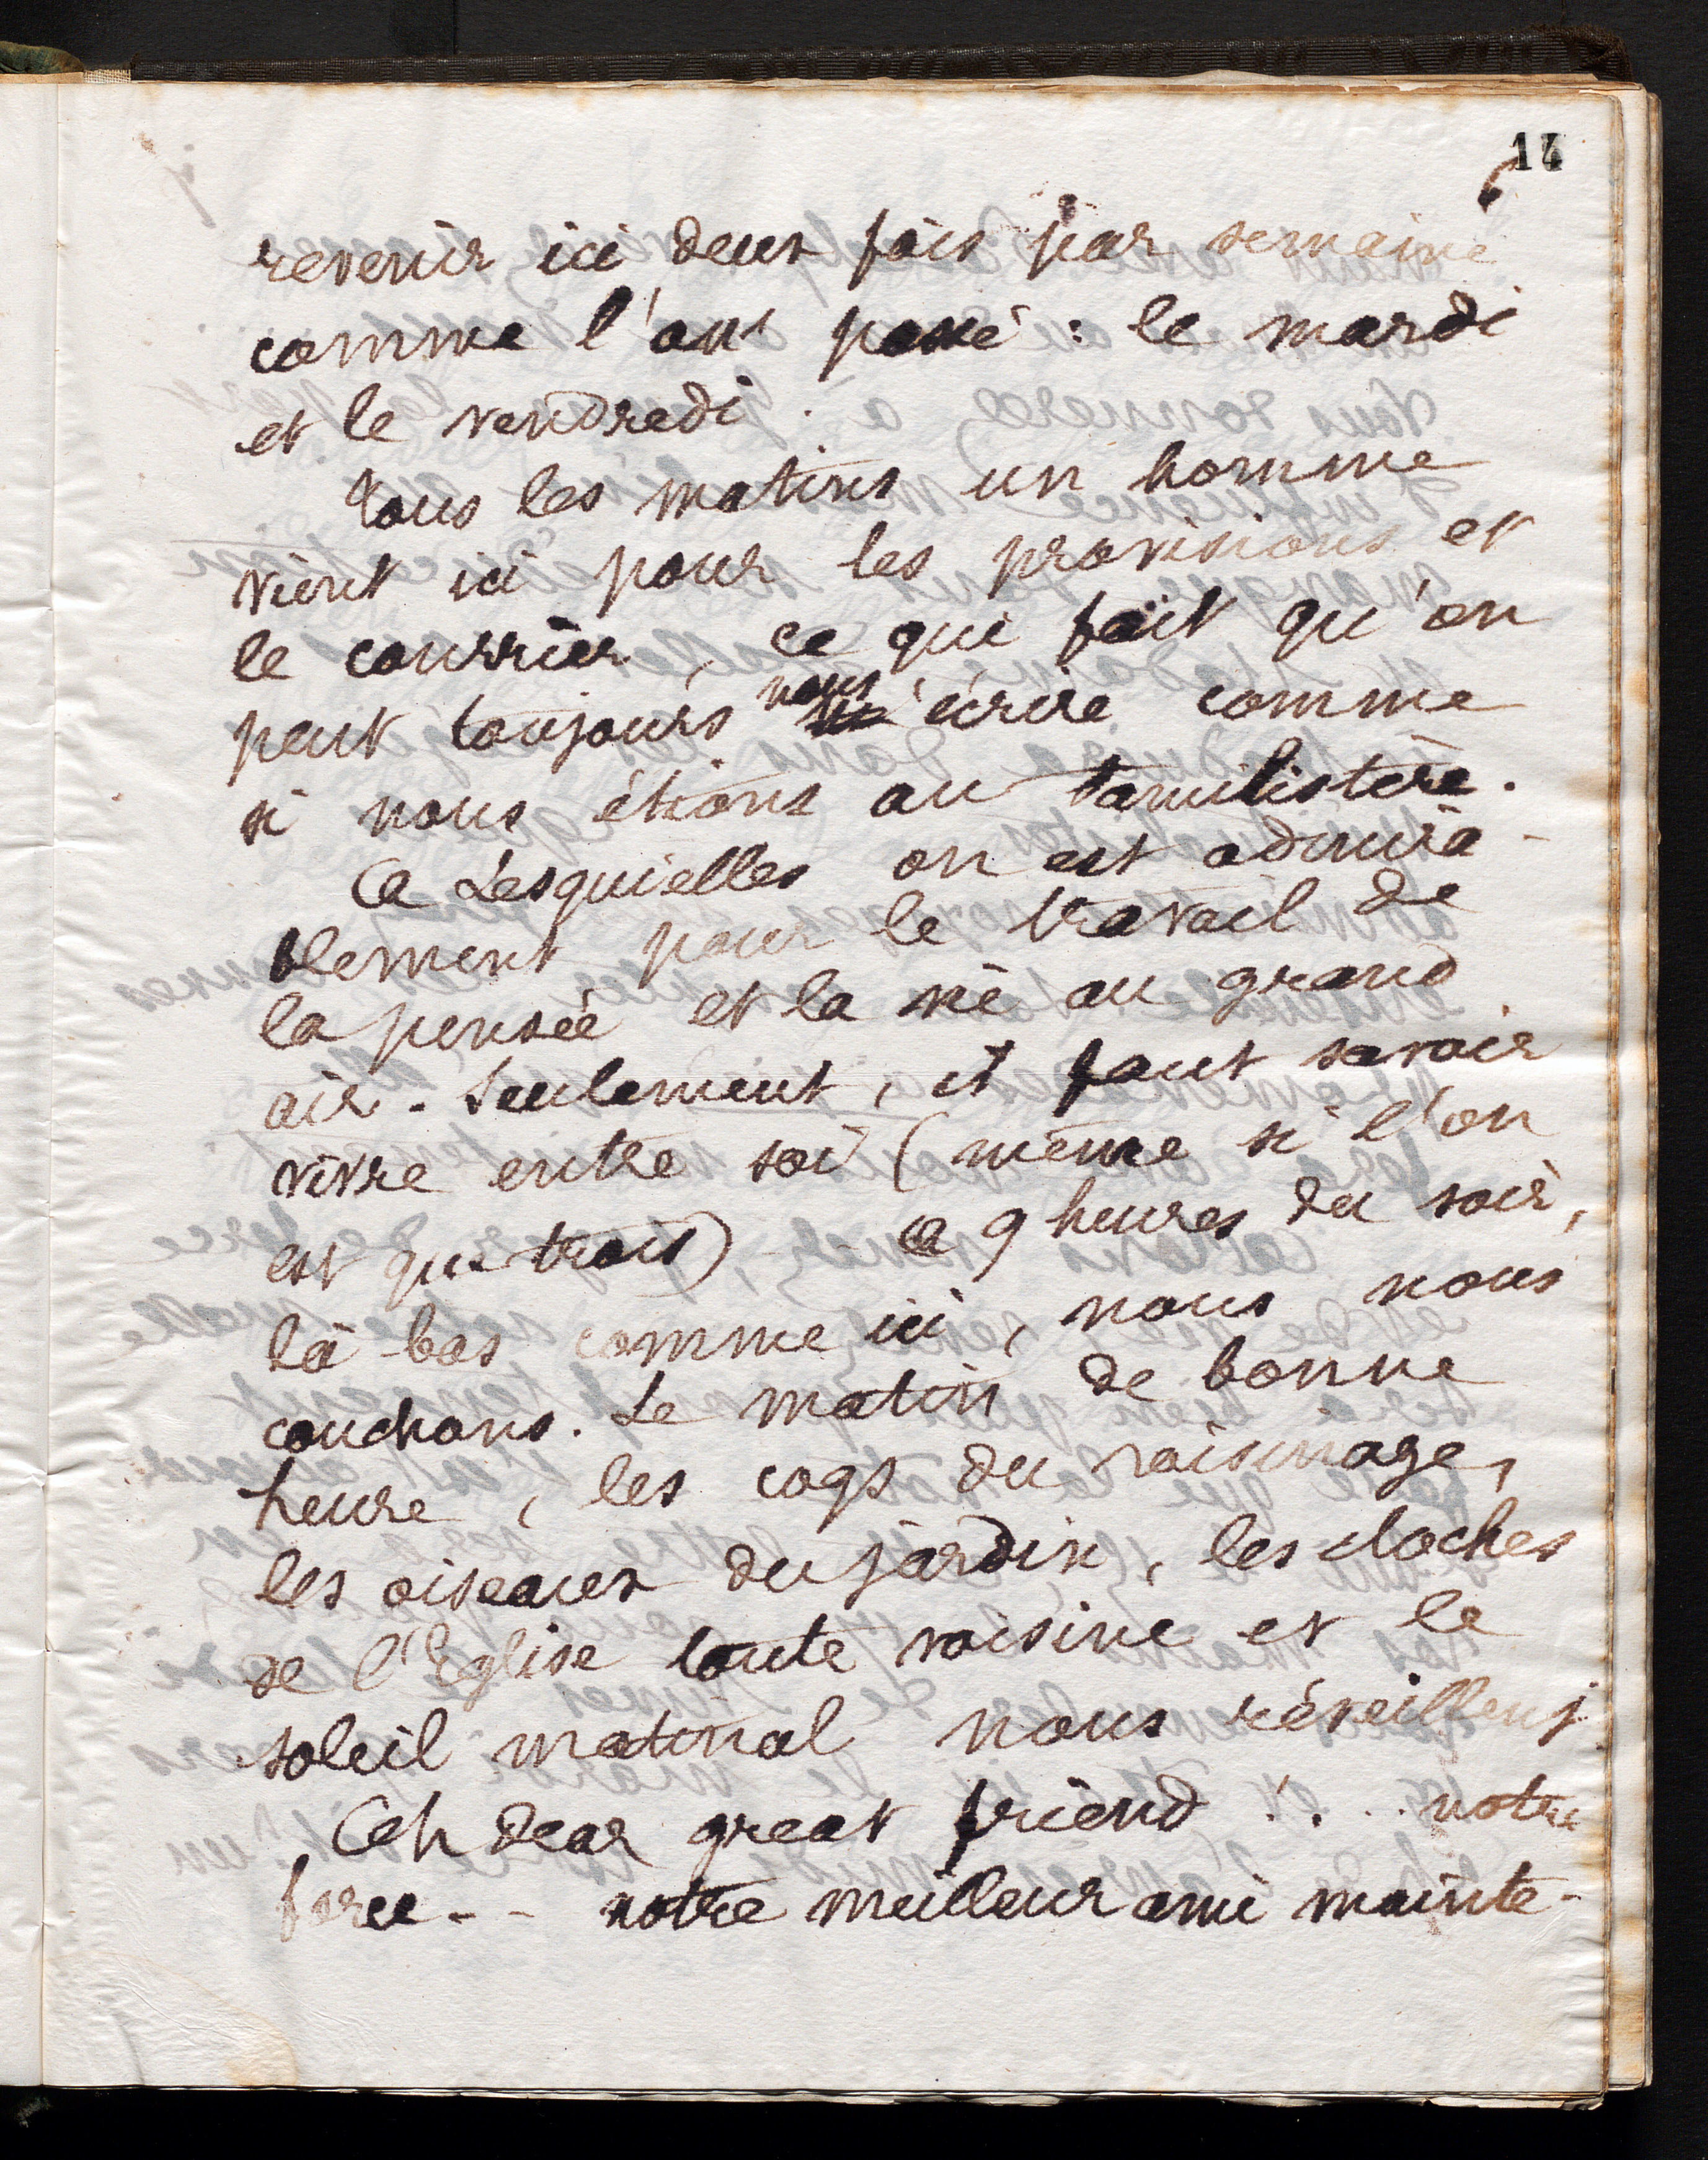 14
revenir ici deux fois par semaine
comme l'an passé : le mardi
et le vendredi.
Tous les matins un homme
vient ici pour les provisions et
le courrier, ce qui fait qu'on
peut toujours nous écrire comme
si nous étions au Familistère.
A Lesquielles on est admira-
blement pour le travail de
la pensée et la vie au grand
air. Seulement, il faut savoir
vivre entre soi (même si l'on
est que trois) - A 9 heures du soir,
là-bas comme ici, nous nous
couchons. Le matin de bonne
heure, les coqs du voisinage,
les oiseaux du jardin, les cloches
de l'Eglise toute voisine et le
soleil matinal nous réveillent.
Ah dear great friend !... notre
force -- notre meilleur ami mainte-